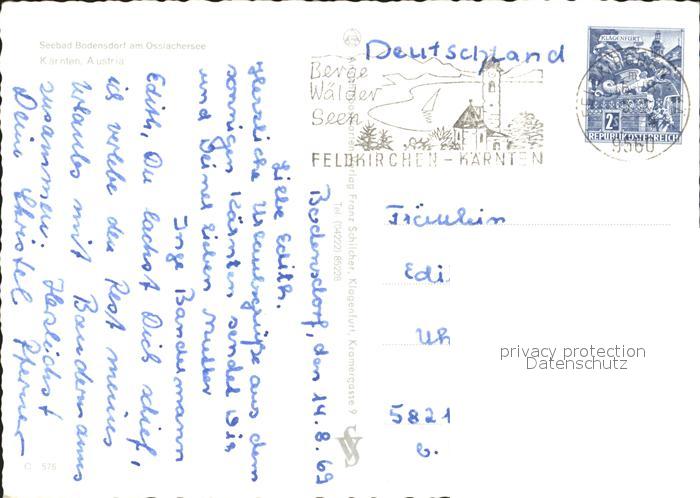 Seebad Bodensdorf am Ossiachersee
Kärnten, Austria
Bodensdorf, den 14.8.69
Liebe Edith.
Herzliche Urlaubsgrüße aus dem
sonnigen Kärnten sendet Dir
und Deiner lieben Mutter
Inge Bandermann
Edith, Du lachst Dich schief,
ich verlebe den Rest meines
Urlaubs mit Bandermanns
zusammen. Herzlichst
Deine Christel
C 575
Verlag Franz Schilcher, Klagenfurt, Kramergasse 9
Tel. (04222) 85228
Deutschland
Berge
Wälder
Seen
FELDKIRCHEN - KÄRNTEN
KLAGENFURT
2 S
REPUBLIK ÖSTERREICH
9560
Fräulein
Edi
Uh
5821
privacy protection
Datenschutz